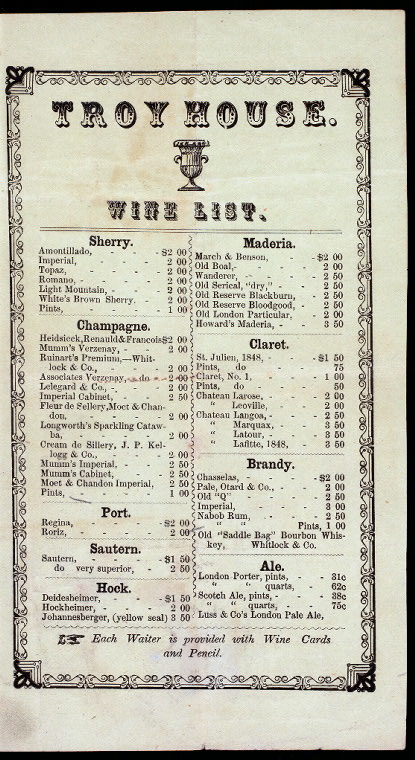 TROY HOUSE.
WINE LIST.
Sherry.
Amontillado, - - - -$2 00
Imperial, - - - - 2 00
Topaz, - - - - 2 00
Romano, - - - - 2 00
Light Mountain, - - - 2 00
White's Brown Sherry. - - 2 00
Pints, - - - - 1 00
Champagne.
Heidsieck,Renauld&Francois$2 00
Mumm's Verzenay, - - - 2 00
Ruinart's Premium,—Whit-
lock & Co., - - - 2 00
Associates Verzenay, do - 2 00
Lelegard & Co., - - - 2 00
Imperial Cabinet, - - - 2 50
Fleur de Sellery,Moet & Chan-
don, - - - - 2 00
Longworth's Sparkling Cataw-
ba, - - - - 2 00
Cream de Sillery, J. P. Kel-
logg & Co., - - - 2 00
Mumm's Imperial, - - - 2 50
Mumm's Cabinet, - - - 2 50
Moet & Chandon Imperial, - 2 50
Pints, - - - - 1 00
Port.
Regina, - - - -$2 00
Roriz, - - - - 2 00
Sautern.
Sautern, - - - -$1 50
do very superior, - - 2 50
Hock.
Deidesheimer, - - -$1 50
Hockheimer, - - - 2 00
Johannesberger, (yellow seal) 3 50
Maderia.
March & Benson, - - -$2 00
Old Boal,- - - - 2 00
Wanderer, - - - - 2 50
Old Serical, "dry," - - 2 50
Old Reserve Blackburn, - - 2 50
Old Reserve Bloodgood, - - 2 50
Old London Particular, - - 2 00
Howard's Maderia, - - - 3 50
Claret.
St. Julien, 1848, - - -$1 50
Pints, do - - - 75
Claret, No. 1, - - - 1 00
Pints, do - - - 50
Chateau Larose, - - - 2 00
" Leoville, - - - 2 00
Chateau Langoa, - - - 2 50
" Marquax, - - - 3 50
" Latour, - - - 3 50
" Lafitte, 1848, - - 3 50
Brandy.
Chasselas, - - - -$2 00
Pale, Otard & Co., - - - 2 00
Old "Q" - - - - 2 50
Imperial, - - - - 3 00
Nabob Rum, - - - - 2 50
" " Pints, 1 00
Old "Saddle Bag" Bourbon Whis-
key, Whitlock & Co.
Ale.
London Porter, pints, - - 31c
" " quarts, - 62c
Scotch Ale, pints, - - - 38c
" " quarts, - - 75c
Luss & Co's London Pale Ale,
☞ Each Waiter is provided with Wine Cards
and Pencil.